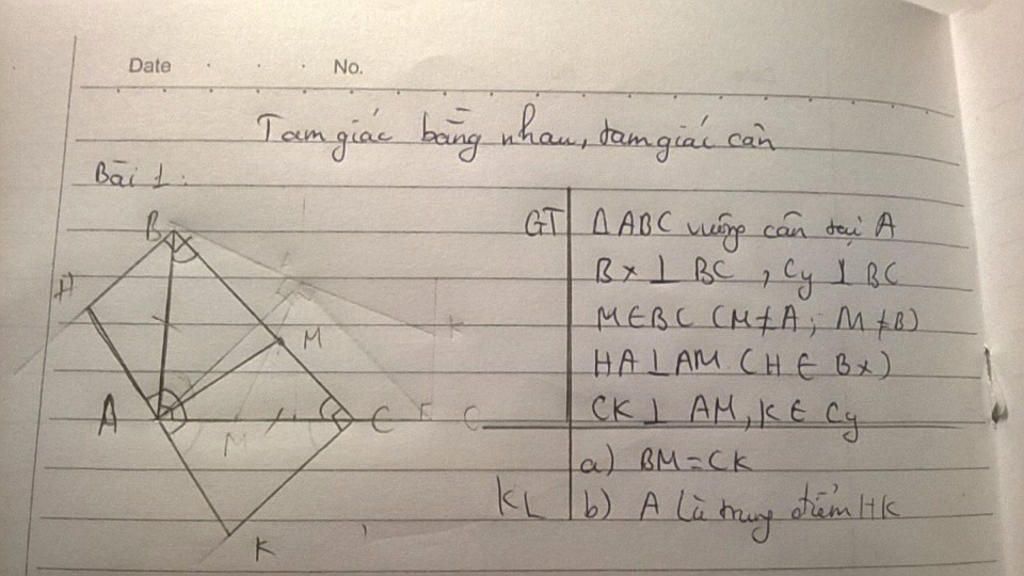 Date No.
Tam giác bằng nhau, tam giác cân
Bài 1:
GT ΔABC vuông cân tại A
Bx ⊥ BC, Cy ⊥ BC
M∈BC (M≠A; M≠B)
HA⊥AM. (H∈ Bx)
CK ⊥ AM, K∈ Cy
a) BM=CK
KL b) A là trung điểm HK
B
H
K
M
A
M
C
E
C
K